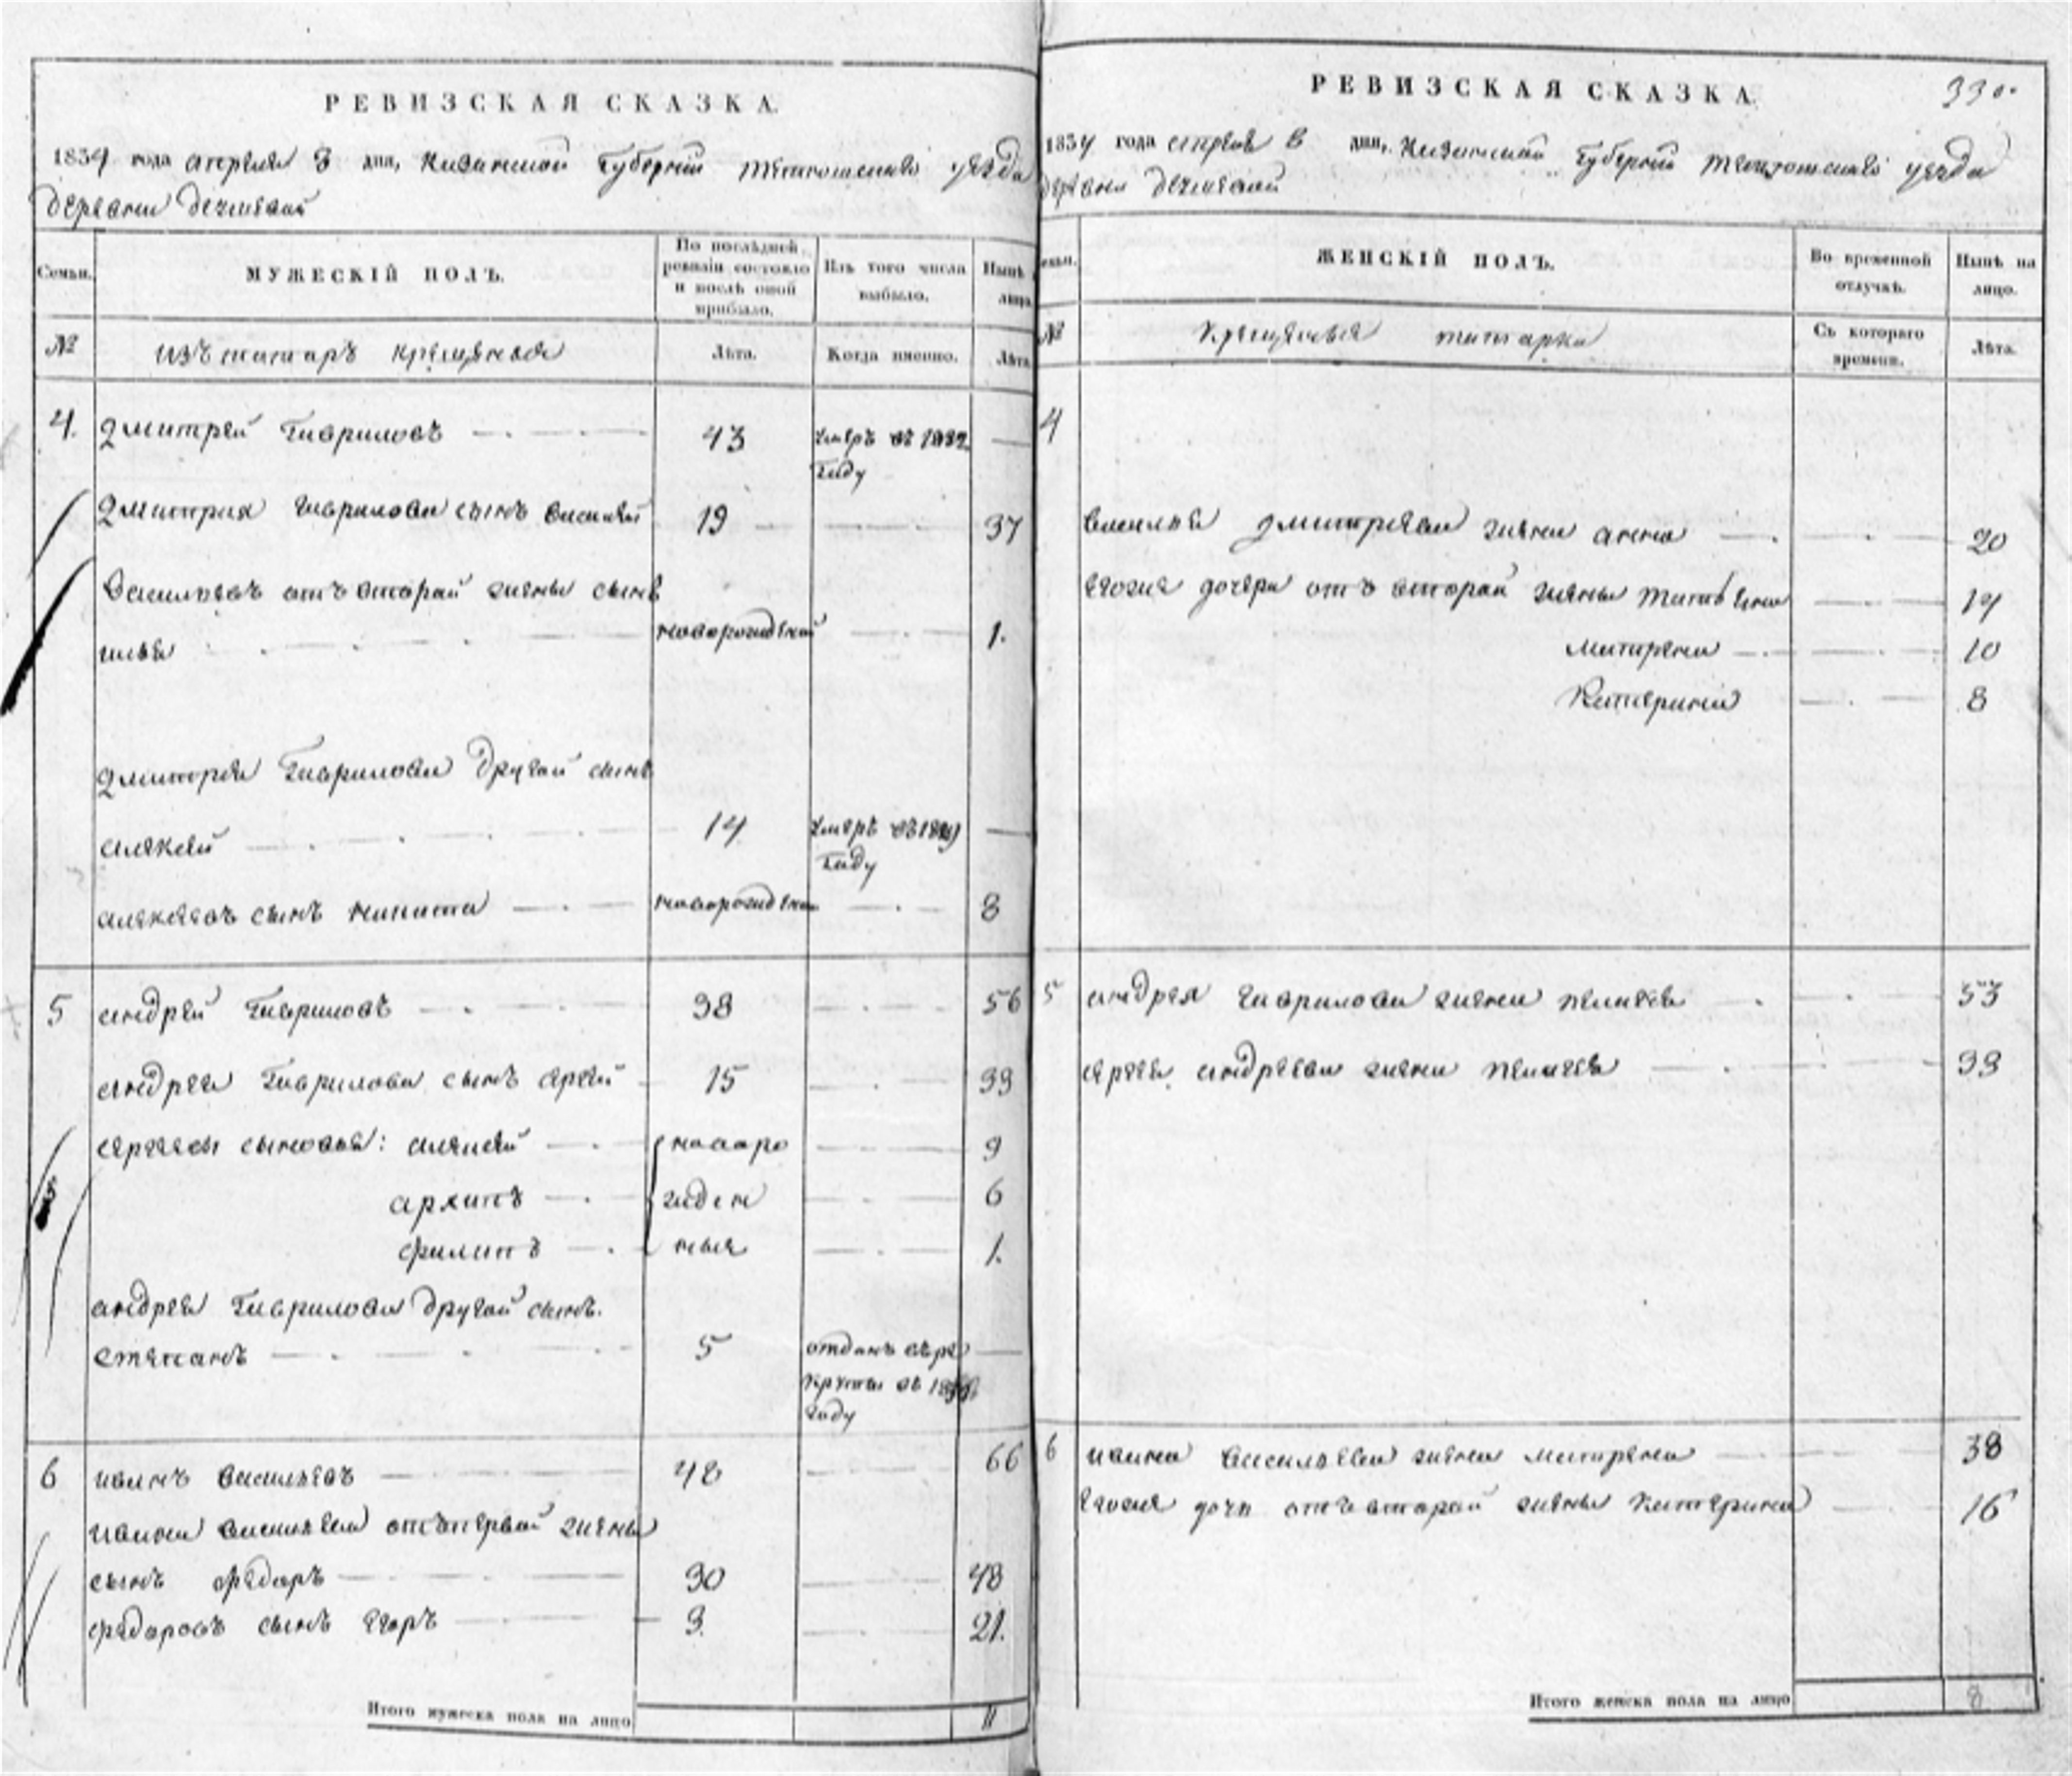 РЕВИЗСКАЯ СКАЗКА.
1834 года апреля 3 дня, Казанской Губернии уезда
деревни
Семьи. МУЖЕСКІЙ ПОЛЪ. По послѣдней ревизіи состояло и послѣ оной прибыло. Изъ того числа выбыло. Нынѣ лица
№ изъ татаръ крещеные Лѣта. Когда именно. Лѣта
4. Дмитрей Гавриловъ 43 умеръ въ 1832 —
году
Дмитрия Гаврилова сынъ василей 19 37
Васильевъ отъ второй жены сынъ
илья новорожденой 1.
Дмитрея Гаврилова другой сынъ
алексей 14 умеръ въ —
году
алексеевъ сынъ никита новорожден 8
5 андрей Гавриловъ 38 56
андрея Гаврилова сынъ 15 33
сыновья: алексей новоро 9
архипъ жден 6
филипъ ныя 1.
андрея Гаврилова другой сынъ.
степанъ 5 отданъ въ ре —
круты въ
году
6 иванъ васильевъ 48 66
ивана васильева отъ первой жены
сынъ федоръ 30 48
федоровъ сынъ егоръ 3. 21.
Итого мужеска пола на лицо 11
РЕВИЗСКАЯ СКАЗКА. 330.
1834 года апреля дня, Казанской Губернии уезда
деревни
№ ЖЕНСКІЙ ПОЛЪ. Во временной отлучкѣ. Нынѣ на лицо.
Крещеныя татарки Съ котораго времени. Лѣта.
4
василья дмитреева жена анна 20
егожа дочери отъ второй жены 14
матрена 10
Катерина 8
5 андрея гаврилова жена пелагея 53
андреева жена пелагея 33
6 ивана васильева жена матрена 38
егожа дочь отъ второй жены катерина 16
Итого женска пола на лицо 8